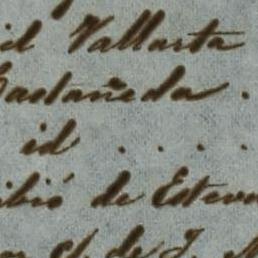 il Vallarta
Castañeda .
id . . . .
ibió de Esteva
cl. de J. M